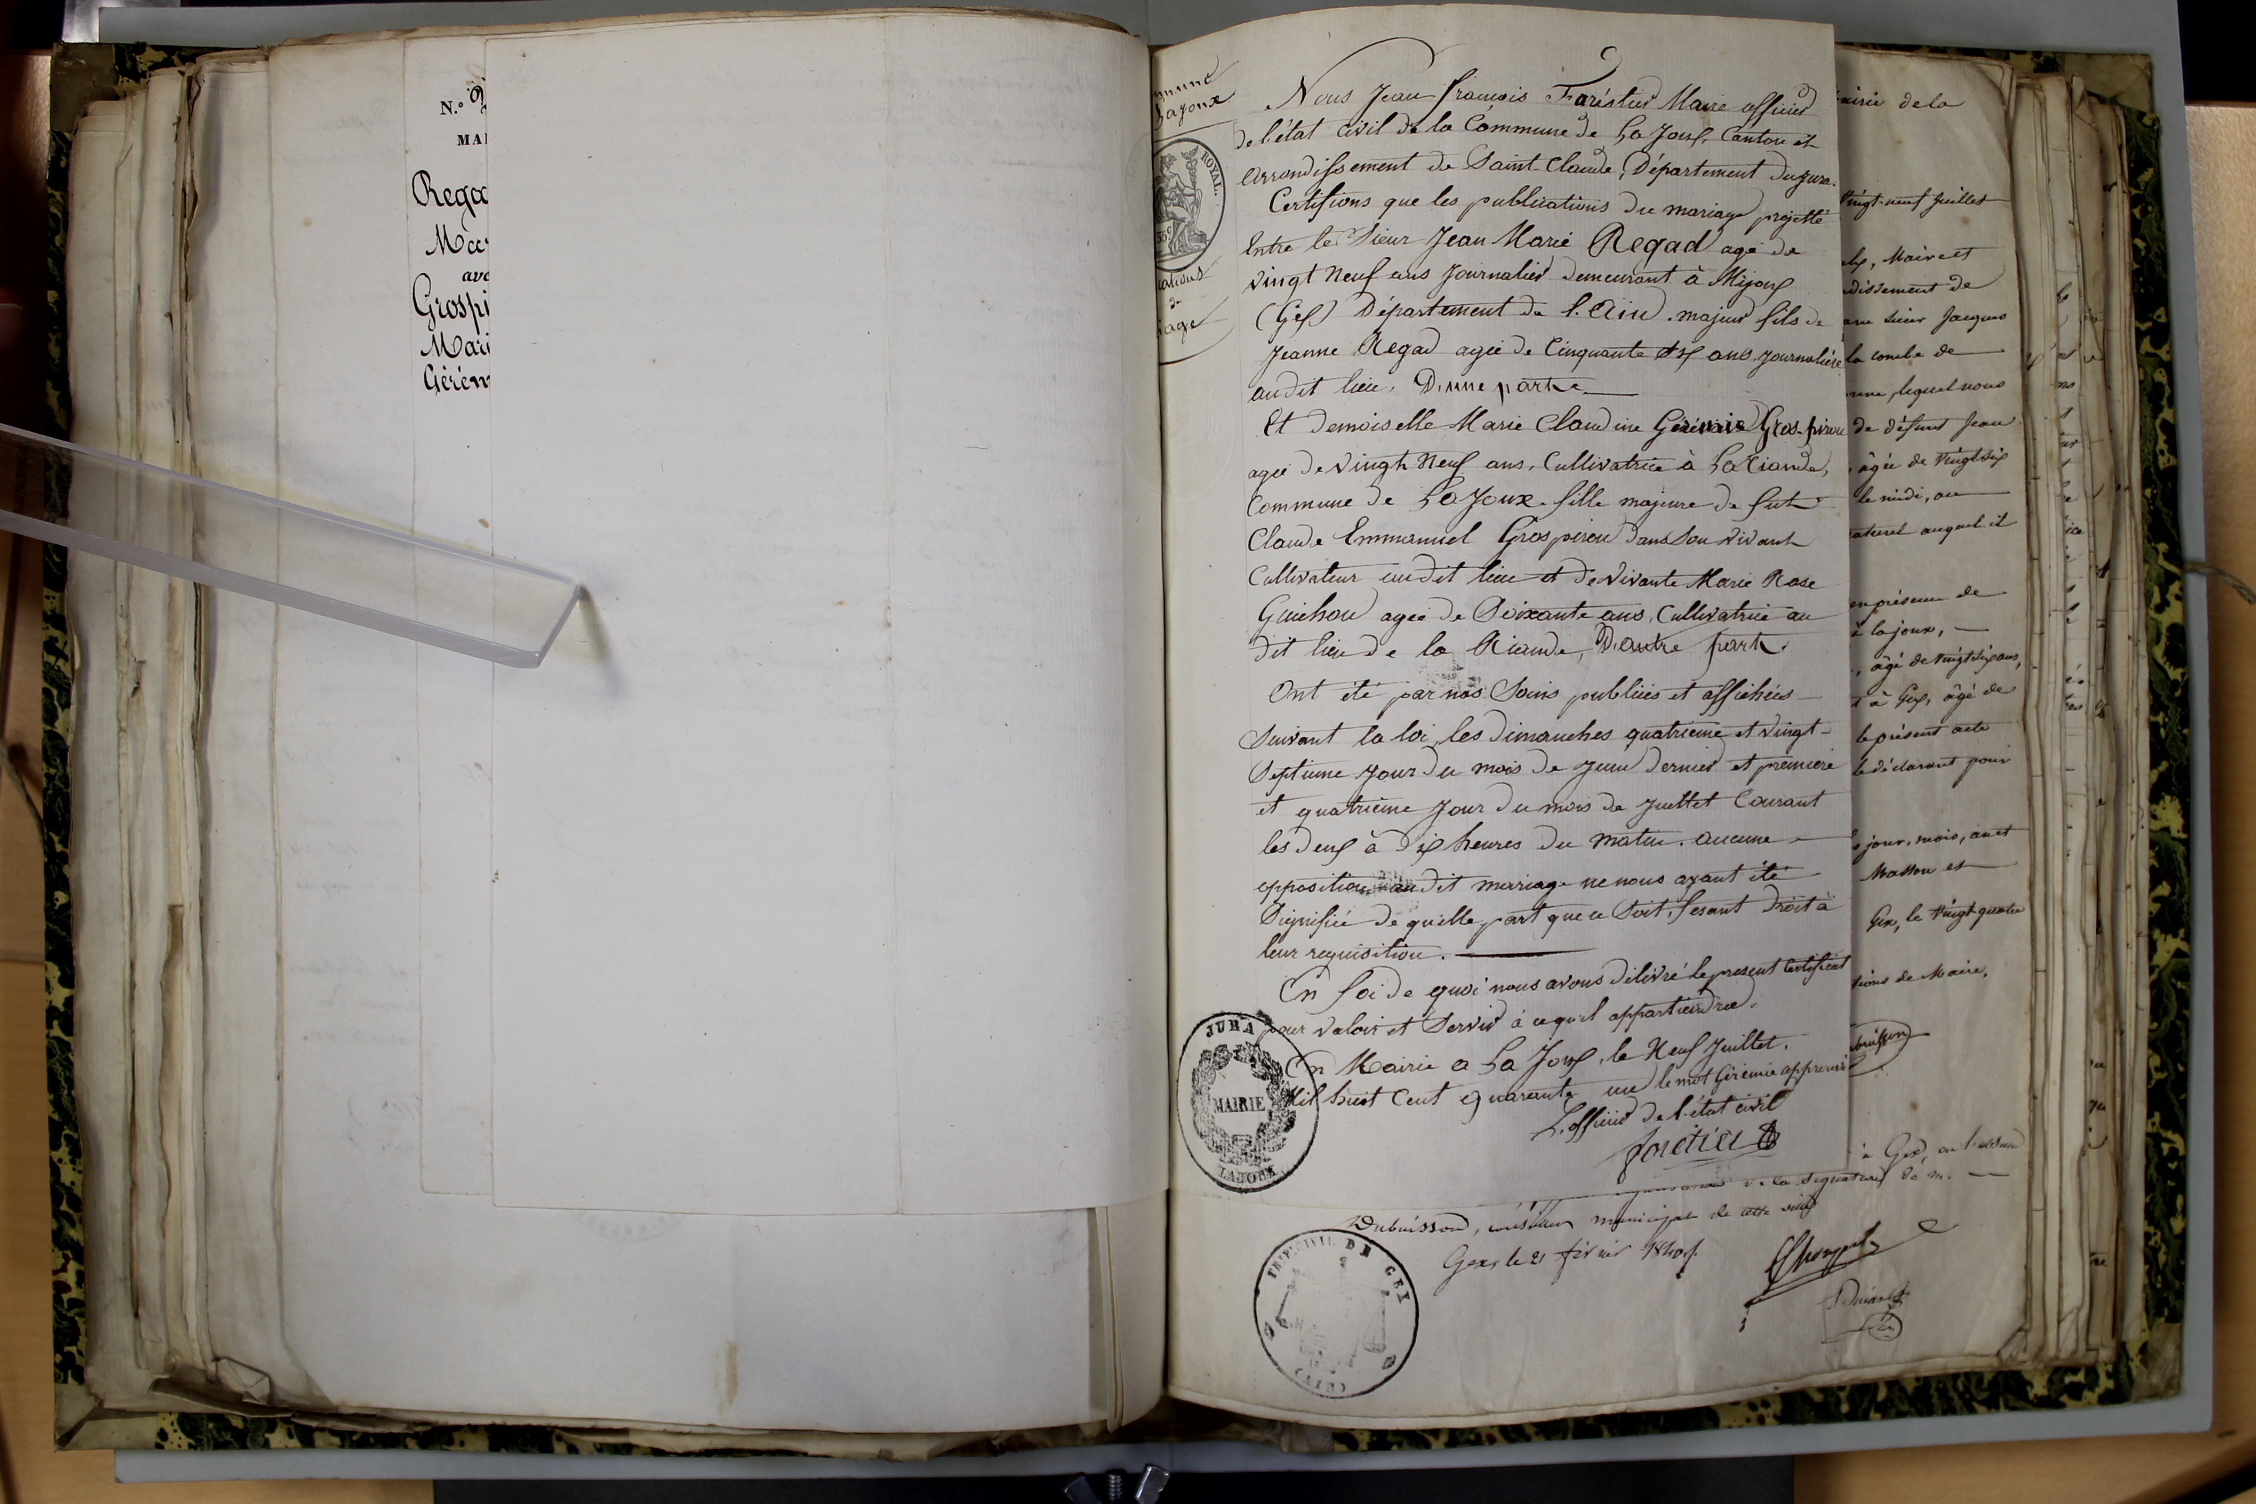 N.° 9
MAI
Rega
Mar
ave
Grospi
Mari
Gérém
Lajoux
ROYAL
Nous Jean françois Foréstier Maire officier
de l'état Civil de la Commune de La Joux, Canton et
arrondissement de Saint-Claude, Département du Jura.
Certifions que les publications du mariage projetté
Entre le Sieur Jean Marie Regad agé de
Vingt Neuf ans Journalier demeurant à Mijoux
(Gex) Département de l'Ain. majeur fils de
Jeanne Regad agée de Cinquante ans Journalière
audit lieu, D'une part
Et Demoiselle Marie Claudine Gérémie Gros-piron
agée de Vingt Neuf ans, Cultivatrice à La
Commune de La Joux fille majeure de fut
Claude Emmanuel Grospiron dans son vivant
Cultivateur audit lieu et de vivante Marie Rose
agée de Soixante ans, Cultivatrice au
dit lieu de la D'autre part.
Ont été par nos Soins publiées et affichées
Suivant la loi, les dimanches quatrieme et vingt-
Septieme Jour du mois de Juin dernier et premiere
et quatrième Jour du mois de Juillet Courant
les deux à dix heures du matin. aucune
opposition audit mariage ne nous ayant été
Signifiée de quelle part que ce Soit, fesant droit à
leur requisition.
En foi de quoi nous avons délivré le present Certificat
pour Valoir et Servir à ce qu'il appartiendra.
En Mairie a La Joux, le Neuf Juillet,
Mil huit Cent Quarante un le mot Gérémie approuvé
L'officier de l'état civil
JURA
MAIRIE
LAJOUX
de la signature de m.
Dubuisson, conseiller municipal de cette ville
Gex, le 21 février
CIVIL DE GEX
(AIN)
de la
Vingt-neuf juillet
Maire et
de
sieur Jacques
la combe de
lequel nous
de défunt Jean
âgée de vingt six
le midi, au
auquel il
en présence de
à lajoux,
âgé de vingt six ans,
à Gex, âgé de
le présent acte
le déclarant pour
jour, mois, an et
Gex, le Vingt quatre
de Maire,
à Gex,